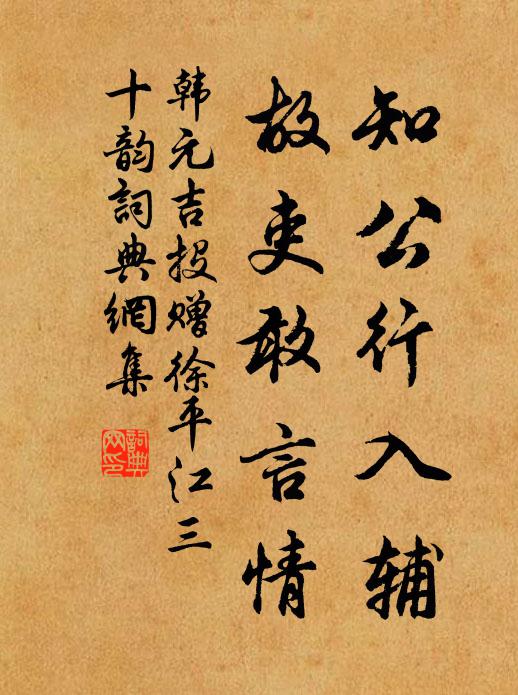 知公行入辅
故吏敢言情
韩元吉投赠徐平江三
十韵詞典網集
詞典網印